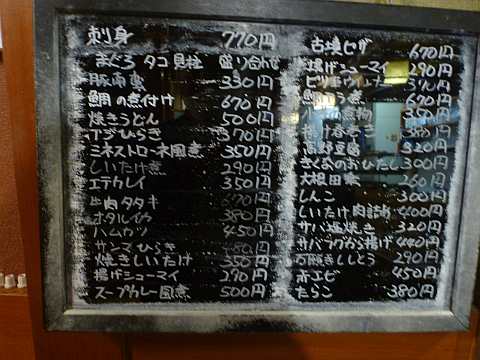 刺身 770円
まぐろ タコ 貝柱 盛り合せ
330円
鯛の煮付け 670円
焼きうどん 500円
370円
ミネストローネ風煮 350円
しいたけ煮 290円
エテカレイ 350円
牛肉タタキ 670円
ホタルイカ 380円
ハムカツ 450円
サンマひらき 480円
焼きしいたけ 350円
揚げシューマイ 290円
スープカレー風煮 500円
ピザ 670円
揚げシューマイ 290円
370円
670円
揚げ春巻き 380円
高野豆腐 320円
きくなのおひたし 300円
大根田楽 260円
しんこ 300円
しいたけ肉詰め 400円
サバ塩焼き 320円
サバフライから揚げ 440円
ししとう 290円
赤エビ 450円
たらこ 380円